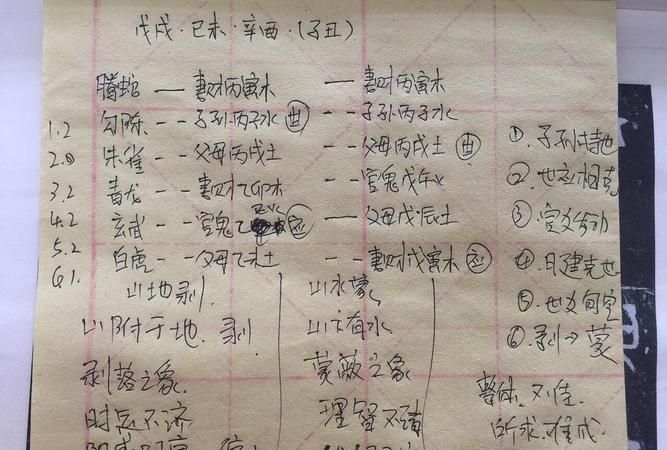 戊戌·己未·辛酉·(子丑)
螣蛇 — 妻财丙寅木 — 妻财丙寅木
1.2 勾陈 -- 子孙丙子水 世 -- 子孙丙子水
2.0 朱雀 -- 父母丙戌土 -- 父母丙戌土 世
3.2 青龙 -- 妻财乙卯木 -- 官鬼戊午火
4.2 玄武 -- 官鬼乙巳火 应 — 父母戊辰土
5.2 白虎 -- 父母乙未土 -- 妻财戊寅木 应
6.1.
山地剥. 山水蒙.
山附于地.剥. 山下有水
剥落之象 蒙蔽之象
时运不济
① 子孙持世
② 世应相克
③ 官父发动
④ 日建克世
⑤ 世爻旬空
⑥ 剥→蒙
整体.不佳.
所求.难成.